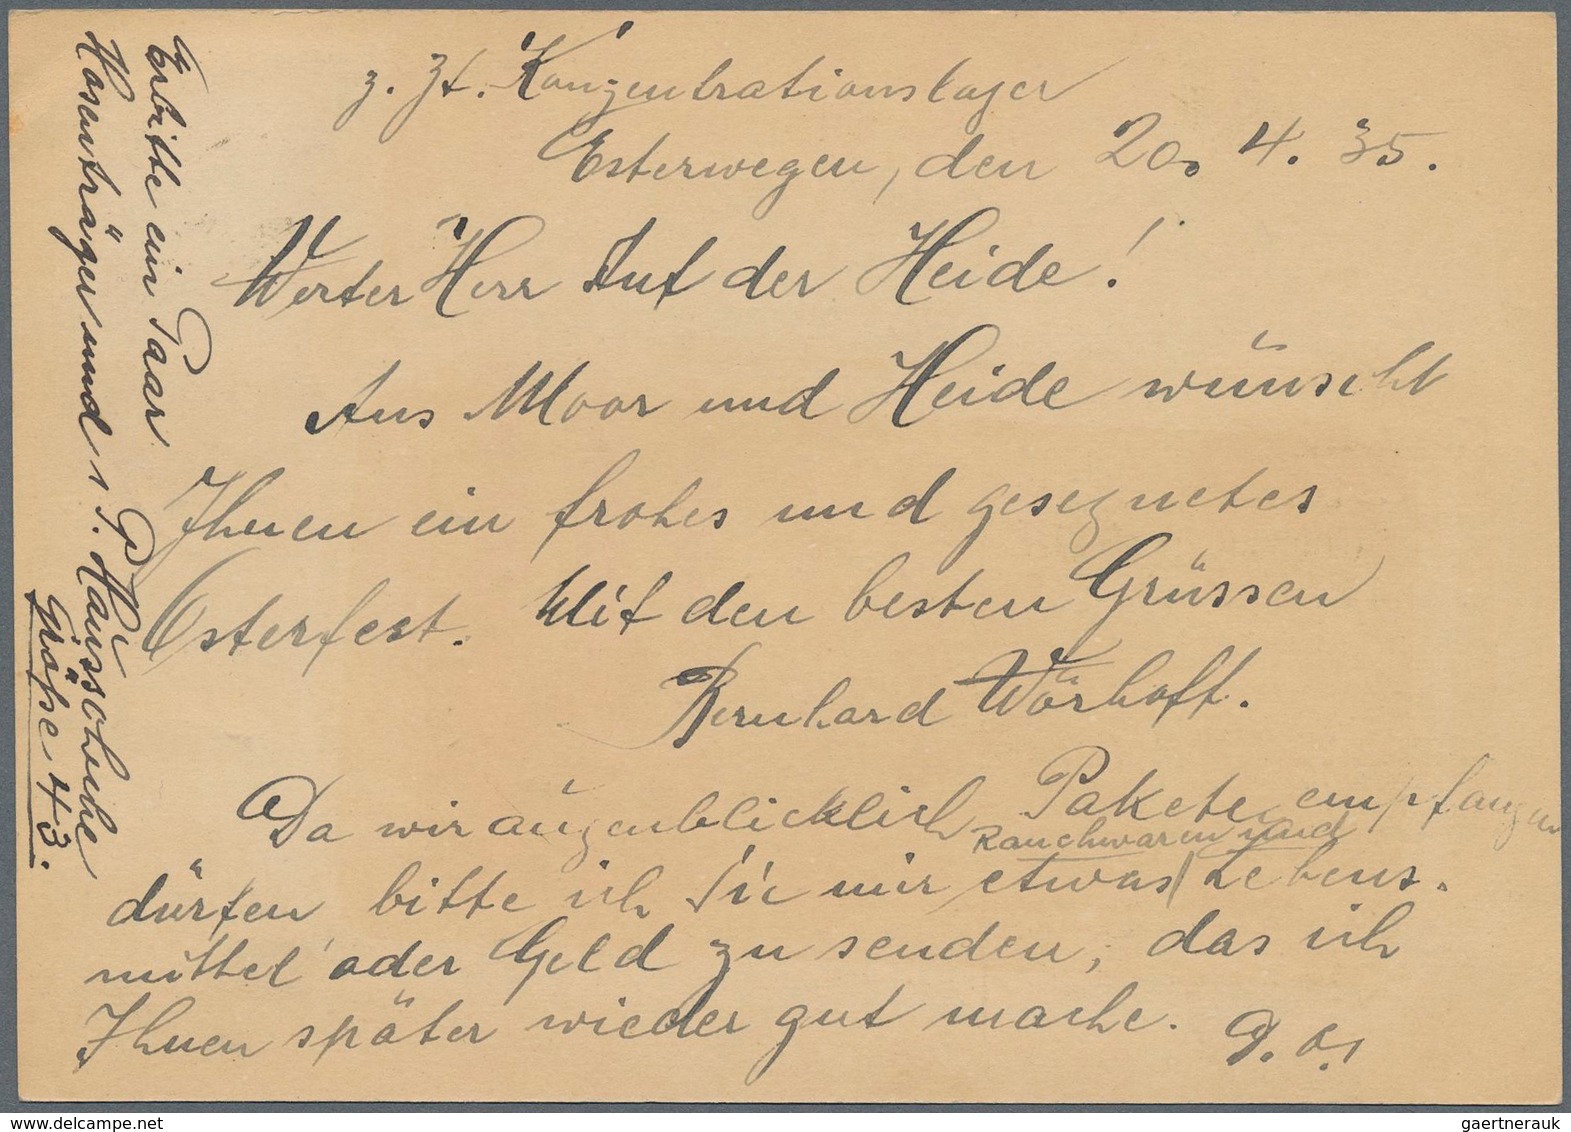 z. Zt. Konzentrationslager
Esterwegen, den 20. 4. 35.
Werter Herr Auf der Heide!
Aus Moor und Heide wünscht
Ihnen ein frohes und gesegnetes
Osterfest. Mit den besten Grüssen
Bernhard Wörhoff.
Da wir augenblicklich Pakete empfangen
Rauchwaren und
dürfen bitte ich Sie mir etwas Lebens-
mittel oder Geld zu senden, das ich
Ihnen später wieder gut mache. D. O.
Erbitte ein Paar
Hosenträger und 1 P. Hausschuhe
Größe 43.
gaertnerauk
www.delcampe.net